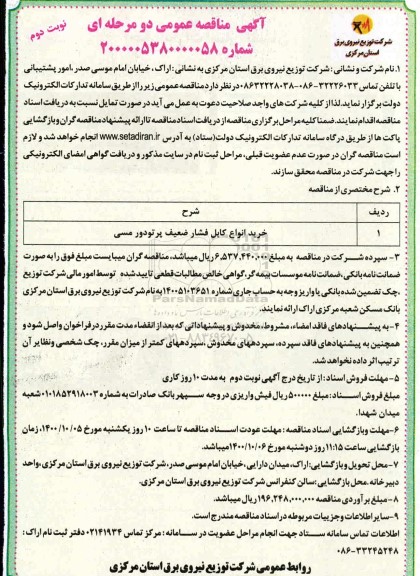 آگهی مناقصه عمومی دو مرحله ای
نوبت دوم
شماره ۲۰۰۰۰۰۵۳۸۰۰۰۰۰۵۸
شرکت توزیع نیروی برق
استان مرکزی
۱. نام شرکت و نشانی : شرکت توزیع نیروی برق استان مرکزی به نشانی : اراک ، خیابان امام موسی صدر ، امور پشتیبانی
با تلفن تماس ۳۲۲۲۶۰۳۳-۰۸۶ ۰۸۶۳۲۲۲۸۰۳۸ در نظر دارد مناقصه عمومی زیر را از طریق سامانه تدارکات الکترونیک
دولت برگزار نماید. لذا از کلیه شرکت های واجد صلاحیت دعوت به عمل می آید در صورت تمایل نسبت به دریافت اسناد
مناقصه اقدام نمایند. ضمنا کلیه مراحل برگزاری مناقصه از دریافت اسناد مناقصه تا ارائه پیشنهاد مناقصه گران و بازگشایی
پاکت ها از طریق درگاه سامانه تدارکات الکترونیک دولت (ستاد) به آدرس www.setadiran.ir انجام خواهد شد و لازم
است مناقصه گران در صورت عدم عضویت قبلی، مراحل ثبت نام در سایت مذکور و دریافت گواهی امضای الکترونیکی
را جهت شرکت در مناقصه محقق سازند.
۲. شرح مختصری از مناقصه
ردیف شرح
۱ خرید انواع کابل فشار ضعیف پرتودور مسی
۳- سپرده شرکت در مناقصه به مبلغ ۶,۵۳۷,۴۴۰,۰۰۰ ریال میباشد. مناقصه گران میبایست مبلغ فوق را به صورت
ضمانت نامه بانکی ، ضمانت نامه موسسات بیمه گر، گواهی خالص مطالبات قطعی تایید شده توسط امور مالی شرکت توزیع
، چک تضمین شده بانکی یا واریز وجه به حساب جاری شماره ۱۴۰۰۵۱۰۳۶۵۱ به نام شرکت توزیع نیروی برق استان مرکزی
بانک مسکن شعبه مرکزی اراک ارائه نمایند.
۴- به پیشنهادهای فاقد امضاء ، مشروط، مخدوش و پیشنهاداتی که بعد از انقضاء مدت مقرر در فراخوان واصل شود و
همچنین به پیشنهادهای فاقد سپرده، سپردههای مخدوش ، سپردههای کمتر از میزان مقرر، چک شخصی ونظایر آن
ترتیب اثر داده نخواهد شد.
۵- مهلت فروش اسناد : از تاریخ درج آگهی نوبت دوم به مدت ۱۰ روز کاری
مبلغ فروش اسناد : مبلغ ۵۰۰۰۰۰ ریال فیش واریزی در وجه سپهر بانک صادرات به شماره ۰۱۰۱۸۵۲۹۱۸۰۰۳ شعبه
میدان شهدا.
۶- مهلت و بازگشایی اسناد مناقصه : مهلت عودت اسناد مناقصه تا ساعت ۱۰ روز یکشنبه مورخ ۱۴۰۰/۱۰/۰۵، زمان
بازگشایی ساعت ۱۱:۱۵ روز دوشنبه مورخ ۱۴۰۰/۱۰/۰۶ میباشد.
۷- محل تحویل و بازگشایی : اراک، میدان دارایی ، خیابان امام موسی صدر، شرکت توزیع نیروی برق استان مرکزی، واحد
دبیرخانه . محل بازگشایی : سالن کنفرانس شرکت توزیع نیروی برق استان مرکزی.
۸- مبلغ برآوردی مناقصه ۱۹۶,۲۴۸,۰۰۰,۰۰۰ ریال میباشد.
۹- سایر اطلاعات و جزییات مربوطه در اسناد مناقصه مندرج است.
اطلاعات تماس سامانه ستاد جهت انجام مراحل عضویت در سامانه : مرکز تماس ۰۲۱۴۱۹۳۴ دفتر ثبت نام اراک :
۰۸۶-۳۳۲۴۵۲۴۸
روابط عمومی شرکت توزیع نیروی برق استان مرکزی
ParsNamadData